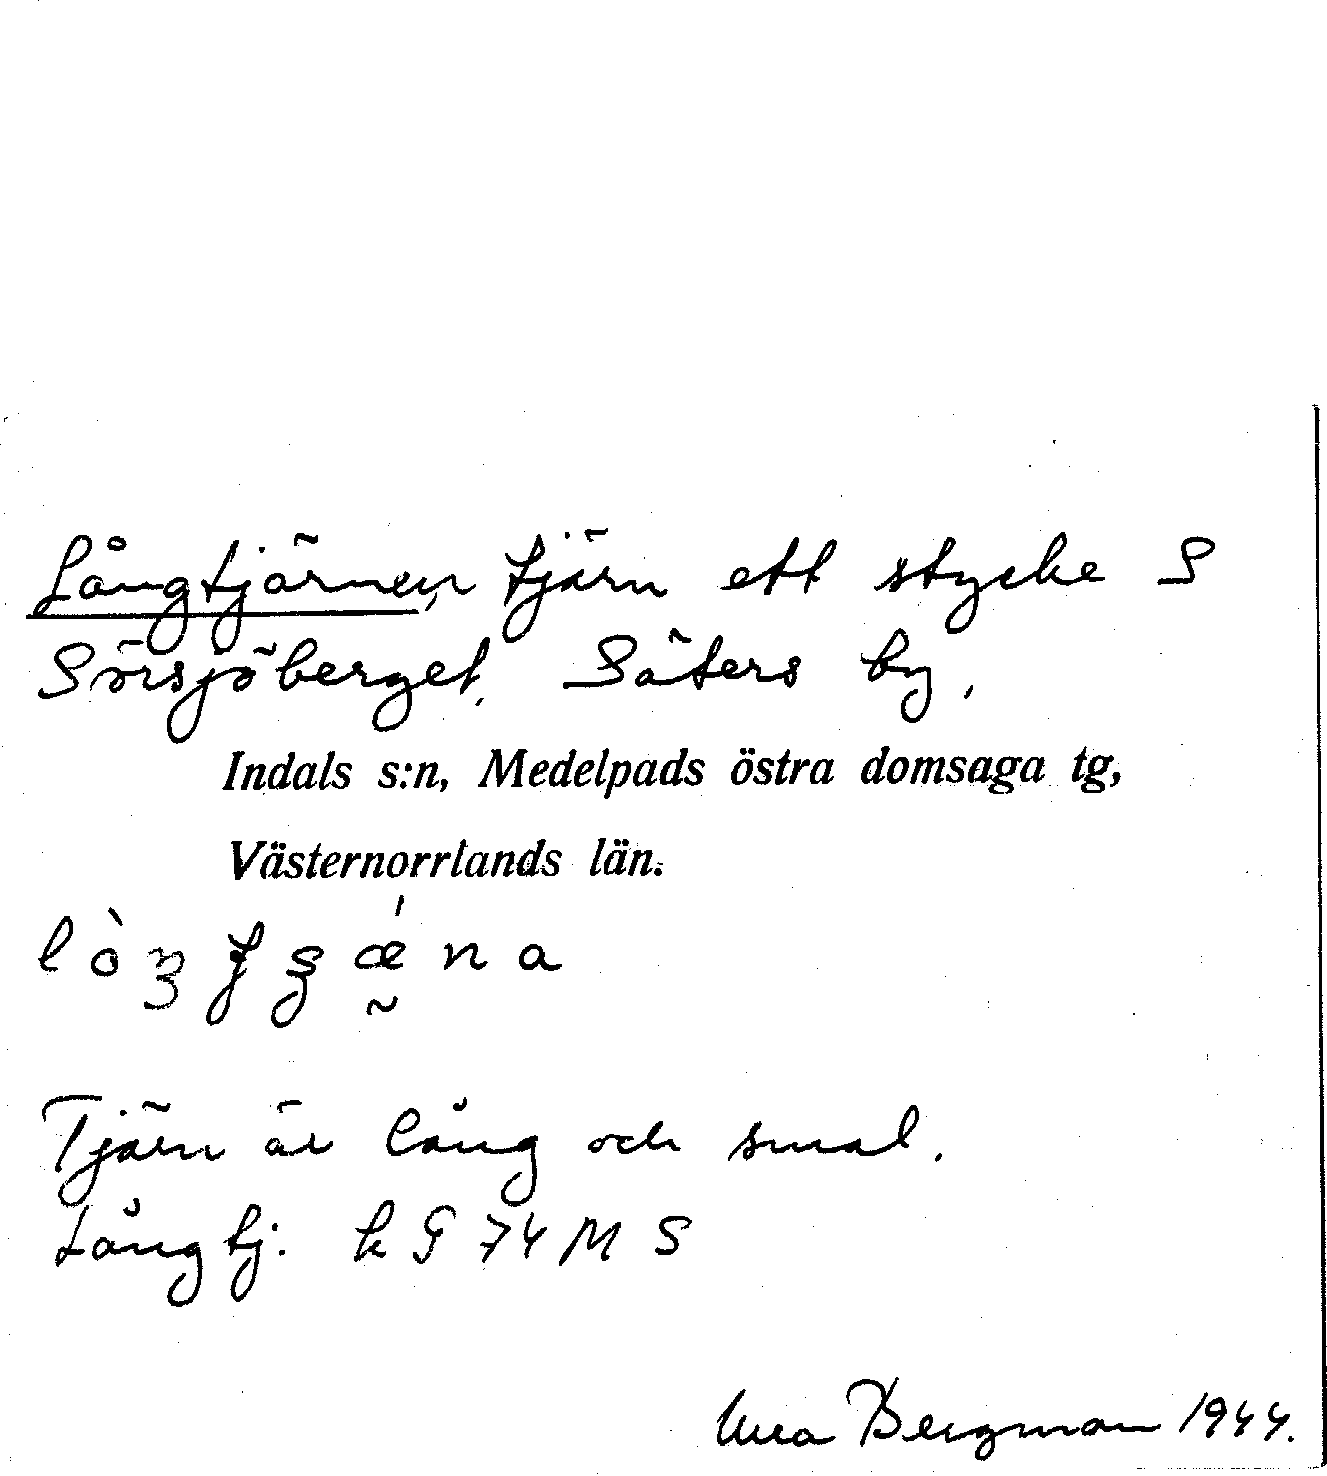 Långtjärnen, tjärn ett stycke S
Sörsjöberget, Säters by,
Indals s:n, Medelpads östra domsaga tg,
Västernorrlands län.
Tjärn är lång och smal.
Långtj. k G 74 M S
Bergman 1944.